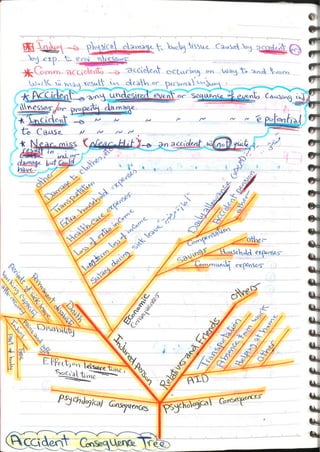 * Injury → physical damage to body tissue caused by accident or
by exp. to env. stressors
* Comm. accidents → accident occuring on way to and from
work & may result in death or personal injury.
* Accident → any undesired event or sequence of events causing inj
illnesses or property damage.
* Incident → ~ ~ ~ ~ ~ potential
to Cause ~ ~ ~ ~
* Near miss (Near Hit) → an accident w/
result in inj or
damage but could
have
others
Damage to clothes
Transportation
Extra household expenses
Health Care expenses
Loss of extra income
Long term lost income
Salary during sick leave
Economic Consequences
Daily allowance
Accident
others
Compensation
Savings
other
Household expenses
Community expenses
Injured person
Death
Disability
Permanent
Effect on leisure time
social time
Psychological Consequences
Relatives and Friends
others
Transportation
Absence from work
Helping at home
other
AID
Psychological Consequences
Accident Consequence Tree